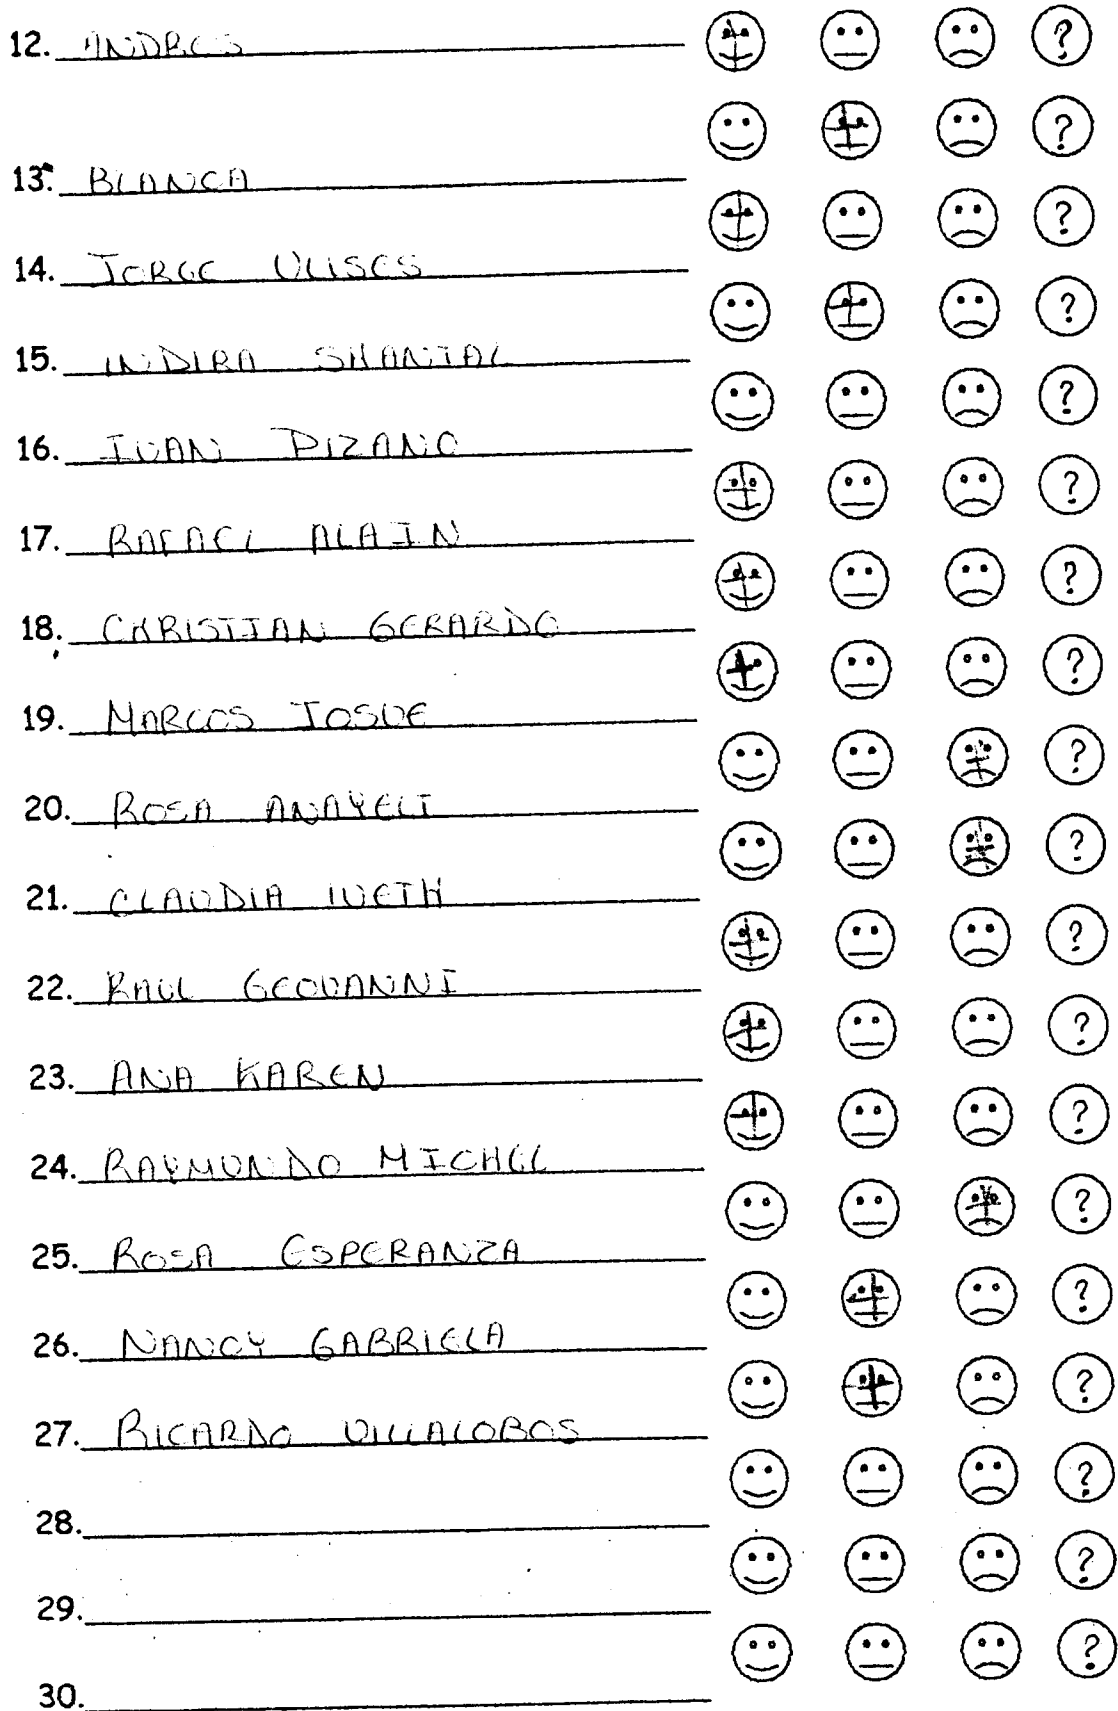 12. ANDRES
?
?
13. BLANCA
?
14. JORGE ULISES
?
15. INDIRA SHANTAL
?
16. IVAN PIZANO
?
17. RAFAEL ALAIN
?
18. CHRISTIAN GERARDO
?
19. MARCOS JOSUE
?
20. ROSA ANAYELI
?
21. CLAUDIA IVETH
?
22. RAUL GEOVANNI
?
23. ANA KAREN
?
24. RAYMUNDO MICHEL
?
25. ROSA ESPERANZA
?
26. NANCY GABRIELA
?
27. RICARDO VILLALOBOS
?
28.
?
29.
?
30.